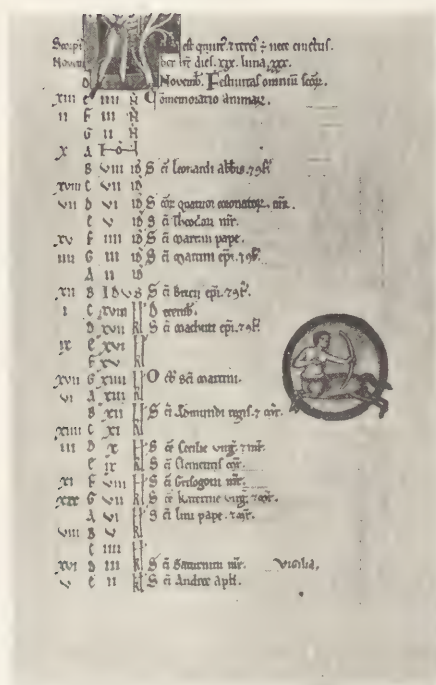 Scorpi est quint. et terci᷒ ÷ nece cinctus.
Novem ber ht̄ dies. xxx. luna, xxx.
D Novemb. Festivitas omniū sc̄oꝝ.
xiii E iiii N Cōmemoratio animaꝝ.
ii F iii N
G ii N
x A No
B viii id S c̄i leonardi abbis. ⁊ 9f.
xviii C vii id
vii D vi id S c̄oꝝ quatuor coronatoꝝ. mr̄.
E v id S c̄i Theodori mr̄.
xv F iiii id S c̄i martini pape.
iiii G iii id S c̄i martini epī. ⁊ 9f.
A ii id
xii B Idus S c̄i Bricii epī. ⁊ 9f.
i C xviii kl Decemb.
D xvii kl S c̄i machuti epī. ⁊ 9f.
ix E xvi kl
F xv kl
xvii G xiiii kl Oct̄ sc̄i martini.
vi A xiii kl
B xii kl S c̄i Edmundi regis. ⁊ mr̄.
xiiii C xi kl
iii D x kl S c̄e Cecilie virḡ. ⁊ mr̄.
E ix kl S c̄i Clementis mr̄.
xi F viii kl S c̄i Grisogoni mr̄.
xix G vii kl S c̄e Katerine virḡ. ⁊ mr̄.
A vi kl S c̄i lini pape. ⁊ mr̄.
viii B v kl
C iiii kl
xvi D iii kl S c̄i Saturnini mr̄. Vigilia.
v E ii kl S c̄i Andree apl̄i.